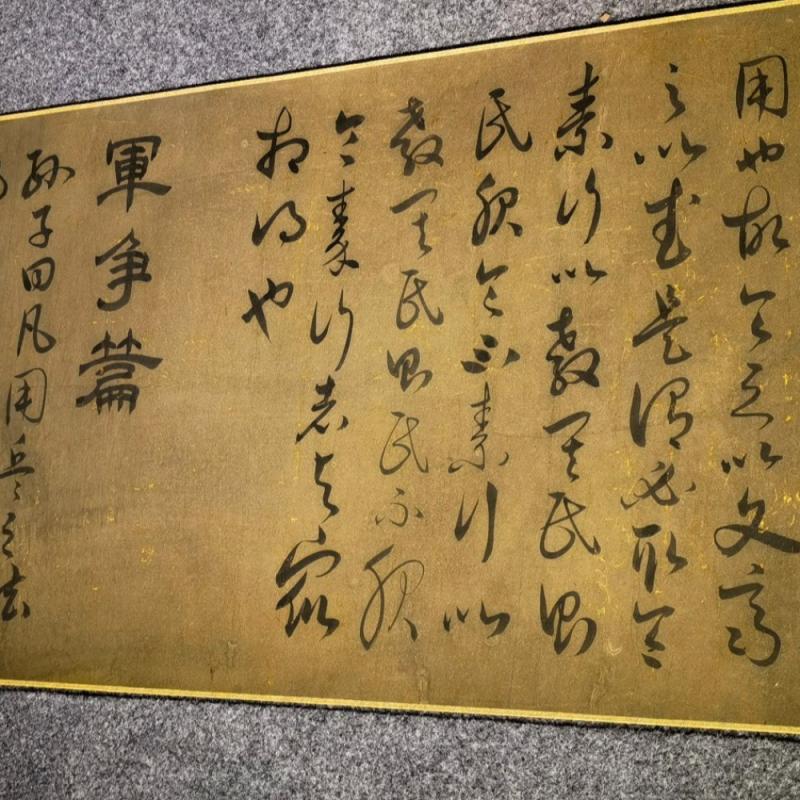 用也故令之以文齊
之以武是謂必取令
素行以教其民則
民服令不素行以
教其民則民不服
令素行者与眾
相得也
軍争篇
孫子曰凡用兵之法